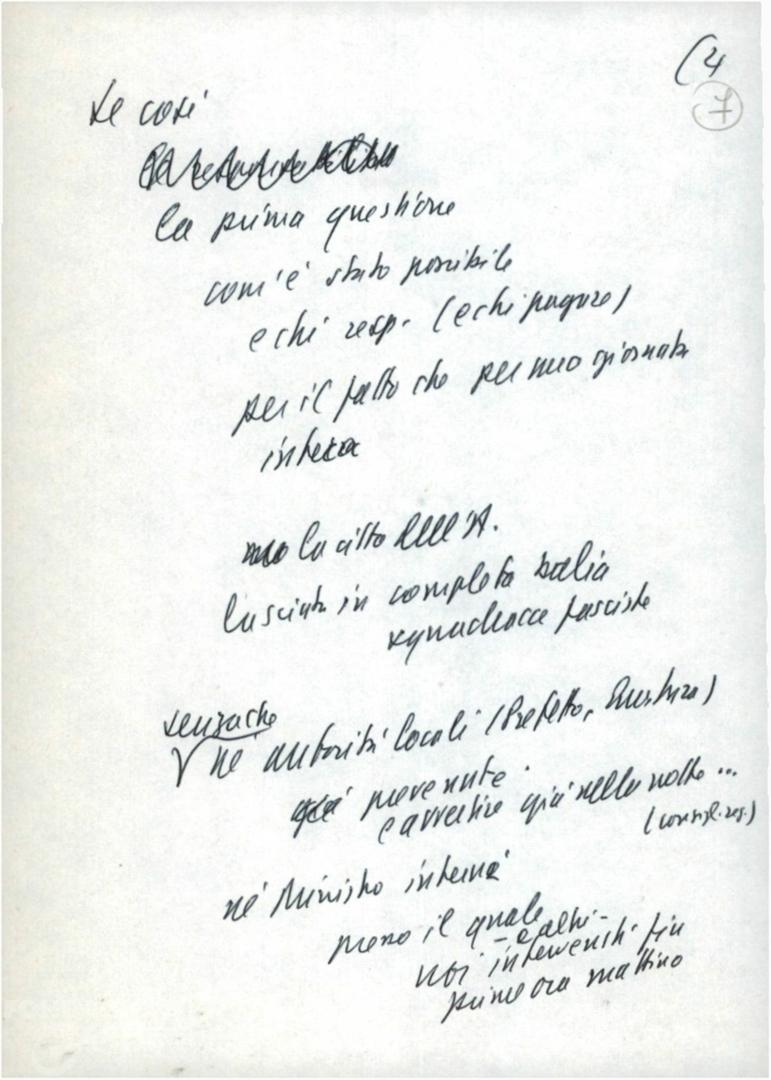 (4
7
se così
la prima questione
com'è stato possibile
e chi resp. (e chi pagare)
per il fatto che per una giornata
intera
la città dell'A.
lasciata in completa balia
squadracce fasciste
senza che
né autorità locali (Prefetto, Questura)
già prevenute
e avvertite già nella notte...
(consigl. reg.)
né Ministro interni
presso il quale
- e altri -
noi intervenuti fin
prime ora mattino